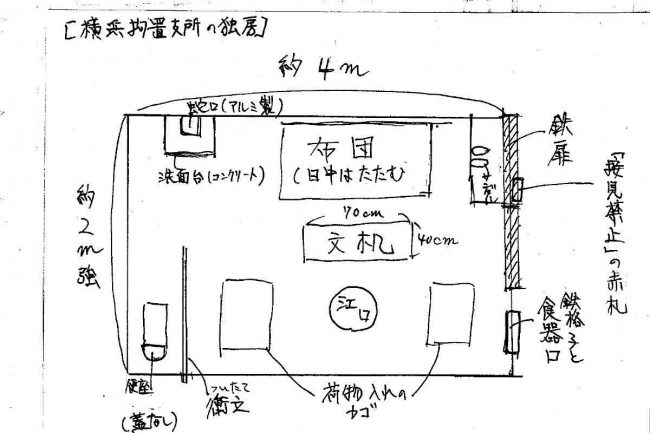 [横浜拘置支所の独房]
約4m
蛇口(アルミ製)
洗面台(コンクリート)
布団
(日中はたたむ
鉄扉
「接見禁止」の赤札
約2m強
70cm
文机
40cm
江口
鉄格子と
食器口
便座
(蓋なし)
ついたて
衝立
荷物入れの
カゴ